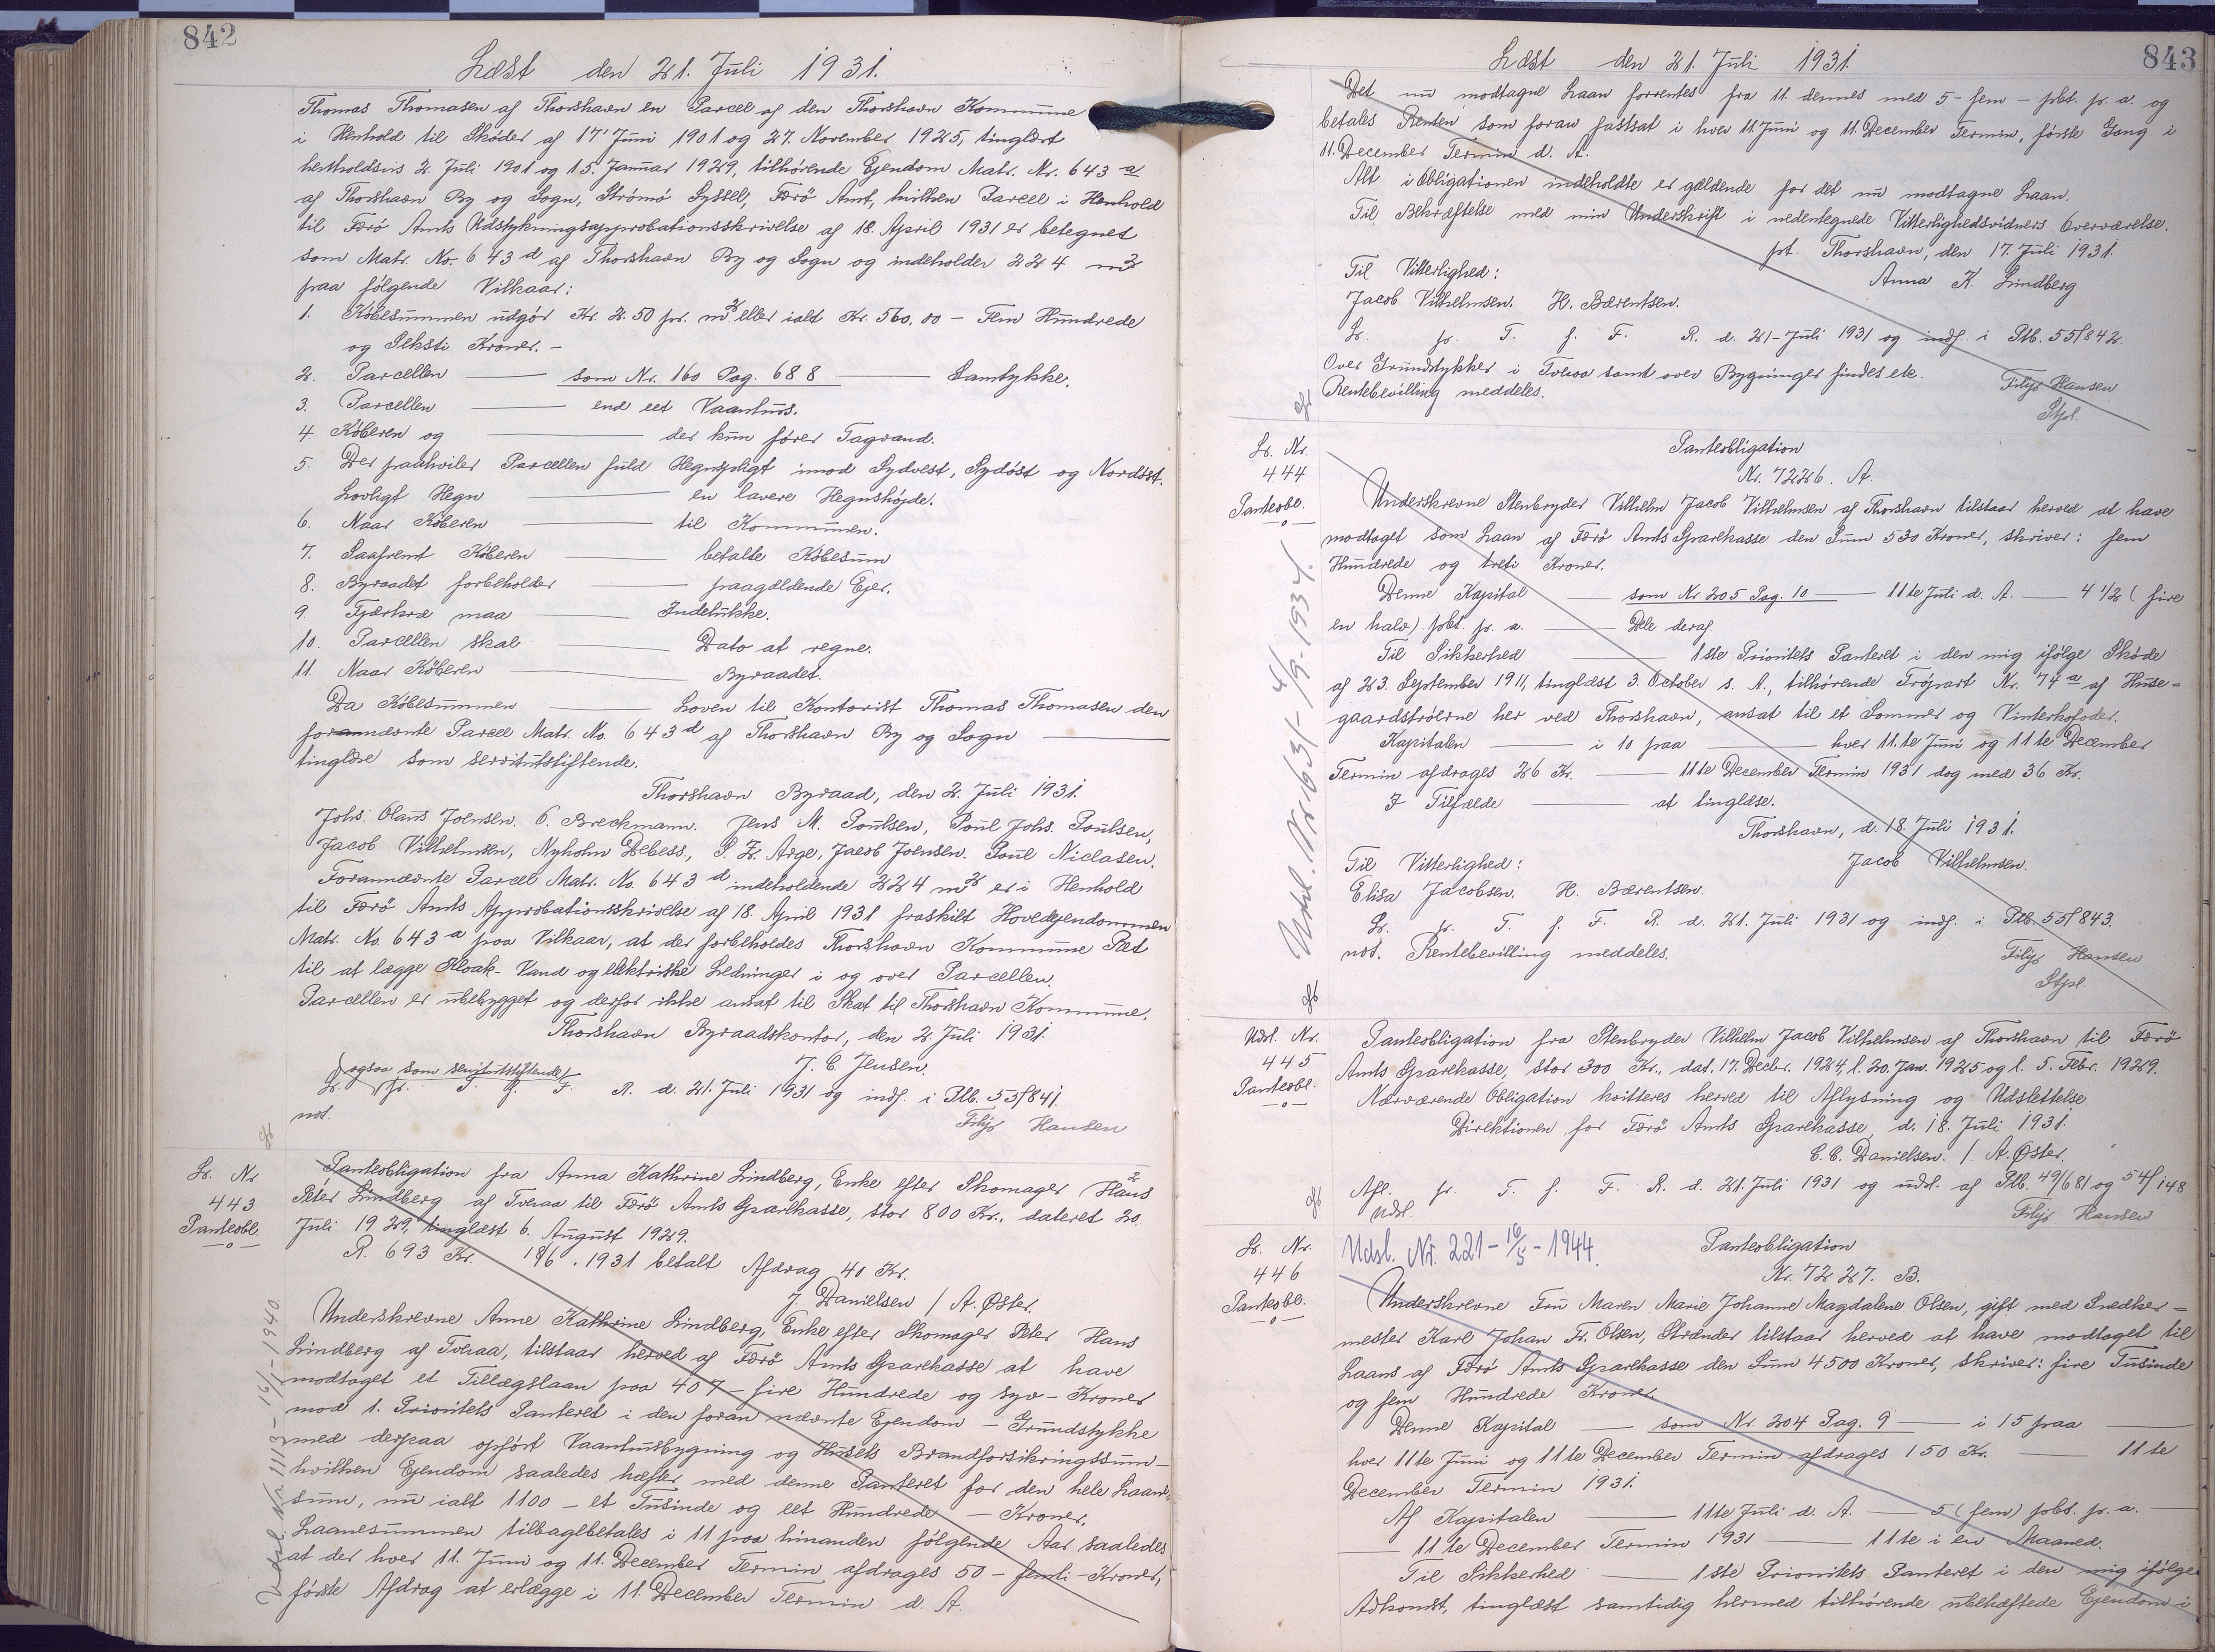 842
Læst den 21. Juli 1931.
Thomas Thomasen af Thorshavn en Parcel af den Thorshavn Kommune
i Henhold til Skøder af 17' Juni 1901 og 27. November 1925, tinglæst
henholdsvis 2. Juli 1901 og 15. Januar 1929, tilhørende Ejendom Matr. Nr. 643 a
af Thorshavn By og Sogn, Strømø Syssel, Færø Amt, hvilken Parcel i Henhold
til Færø Amts Udstykningsapprobationsskrivelse af 18. April 1931 er betegnet
som Matr. No. 643 d af Thorshavn By og Sogn og indeholder 224 m2
paa følgende Vilkaar:
1. Købesummen udgør Kr. 2.50 pr. m2 eller ialt Kr. 560,00 – Fem Hundrede
og Seksti Kroner. –
2. Parcellen — som Nr. 160 Pag. 688 — Samtykke.
3. Parcellen — end eet Vaanhus.
4. Køberen og — der kun fører Tagvand.
5. Der paahviler Parcellen fuld Hegnspligt imod Sydvest, Sydøst og Nordøst.
Lovligt Hegn — en lavere Hegnshøjde.
6. Naar Køberen — til Kommunen.
7. Saafremt Køberen — betalte Købesum
8. Byraadet forbeholder — paagældende Ejer.
9. Fjerkræ maa — Indelukke.
10. Parcellen skal — Dato at regne.
11. Naar Køberen — Byraadet.
Da Købesummen — Loven til Kontorist Thomas Thomasen den
forannævnte Parcel Matr. No. 643 d af Thorshavn By og Sogn —
tinglæse som servitutstiftende.
Thorshavn Byraad, den 2. Juli 1931.
Johs. Olaus Joensen. O. Breckmann. Jens M. Poulsen, Poul Johs. Poulsen,
Jacob Vilhelmsen, Nyholm Debess., S. Z. Arge, Jacob Joensen. Poul Niclasen.
Forannævnte Parcel Matr. No. 643 d indeholdende 224 m2 er i Henhold
til Færø Amts Approbationsskrivelse af 18. April 1931 fraskilt Hovedejendommen
Matr. No. 643 a paa Vilkaar, at der forbeholdes Thorshavn Kommune Ret
til at lægge Kloak- Vand og elektriske Ledninger i og over Parcellen.
Parcellen er ubebygget og derfor ikke ansat til Skat til Thorshavn Kommune.
Thorshavn Byraadskontor, den 2. Juli 1931.
J. C. Jensen.
(ogsaa som servitutstiftende)
Lr. pr. T. f. F. R. d. 21. Juli 1931 og indf. i Ptb. 55/841.
not.
Filip Hansen
Lr. Nr.
443
Panteobl.
Panteobligation fra Anna Kathrine Lindberg, Enke efter Skomager Hans
Peter Lindberg af Tveraa til Færø Amts Sparekasse, stor 800 Kr., dateret 20.
Juli 1929, tinglæst 6. August 1929.
R. 693 Kr. 18/6. 1931 betalt Afdrag 40 Kr.
J. Danielsen / A. Øster.
Underskrevne Anne Kathrine Lindberg, Enke efter Skomager Peter Hans
Lindberg af Tveraa, tilstaar herved af Færø Amts Sparekasse at have
modtaget et Tillægslaan paa 407 – fire Hundrede og syv – Kroner
mod 1. Prioritets Panteret i den foran nævnte Ejendom – Grundstykke
med derpaa opført Vaanhusbygning og Husets Brandforsikringssum –
hvilken Ejendom saaledes hæfter med denne Panteret for den hele Laane-
sum, nu ialt 1100 – et Tusinde og eet Hundrede – Kroner.
Laanesummen tilbagebetales i 11 paa hinanden følgende Aar saaledes
at der hver 11. Juni og 11. December Termin afdrages 50 – femti – Kroner,
første Afdrag at erlægge i 11. December Termin d. A.
Udsl. Nr. 1113 – 16/1 – 1940
843
Læst den 21. Juli 1931.
Det nu modtagne Laan forrentes fra 11. dennes med 5 – fem – pCt. pr. a. og
betales Renten som foran fastsat i hver 11. Juni og 11. December Termin, første Gang i
11. December Termin d. A.
Alt i Obligationen indeholdte er gældende for det nu modtagne Laan.
Til Bekræftelse med min Underskrift i nedentegnede Vitterlighedsvidners Overværelse.
pt. Thorshavn, den 17. Juli 1931.
Til Vitterlighed:
Anna K. Lindberg
Jacob Vilhelmsen. H. Bærentsen.
Lr. pr. T. f. F. R. d. 21. Juli 1931 og indf. i Ptb. 55/842.
Over Grundstykker i Tveraa samt over Bygninger findes etc.
Rentebevilling meddeles.
Filip Hansen
Stpl.
Lr. Nr.
444
Panteobl.
Panteobligation
Nr. 7226. A.
Underskrevne Stenbryder Vilhelm Jacob Vilhelmsen af Thorshavn tilstaar herved at have
modtaget som Laan af Færø Amts Sparekasse den Sum 530 Kroner, skriver: fem
Hundrede og treti Kroner.
Denne Kapital — som Nr. 205 Pag. 10 — 11te Juli d. A. — 4 1/2 ( fire
en halv) pCt. pr. a. — Dele deraf.
Til Sikkerhed — 1ste Prioritets Panteret i den mig ifølge Skøde
af 23. September 1911, tinglæst 3. October s. A., tilhørende Trøpart Nr. 74 a af Huse=
gaardstrøerne her ved Thorshavn, ansat til et Sommer og Vinterkofoder.
Kapitalen — i 10 paa — hver 11.te Juni og 11te December
Termin afdrages 26 Kr. — 11te December Termin 1931 dog med 36 Kr.
I Tilfælde — at tinglæse.
Thorshavn, d. 18. Juli 1931.
Til Vitterlighed:
Jacob Vilhelmsen.
Elisa Jacobsen. H. Bærentsen.
Lr. pr. T. f. F. R. d. 21. Juli 1931 og indf. i Ptb. 55/843.
not. Rentebevilling meddeles.
Filip Hansen
Stpl.
Udsl. Nr. 1631 – 4/9 – 1934.
Udsl. Nr.
445
Panteobl.
Panteobligation fra Stenbryder Vilhelm Jacob Vilhelmsen af Thorshavn til Færø
Amts Sparekasse, stor 300 Kr., dat. 17. Decbr. 1924, l. 20. Jan. 1925 og l. 5. Febr. 1929.
Nærværende Obligation kvitteres herved til Aflysning og Udslettelse
Direktionen for Færø Amts Sparekasse, d. 18. Juli 1931.
C. C. Danielsen. / A. Øster.
Afl. pr. T. f. F. R. d. 21. Juli 1931 og udsl. af Ptb. 49/681 og 54/148
Udsl.
Filip Hansen
Lr. Nr.
446
Panteobl.
Udsl. Nr. 221 – 16/5 – 1944.
Panteobligation
Nr. 7227. B.
Underskrevne Fru Maren Marie Johanne Magdalene Olsen, gift med Snedker=
mester Karl Johan Fr. Olsen, Strænder tilstaar herved at have modtaget til
Laans af Færø Amts Sparekasse den Sum 4500 Kroner, skriver: fire Tusinde
og fem Hundrede Kroner.
Denne Kapital — som Nr. 204 Pag. 9 — i 15 paa —
hver 11te Juni og 11te December Termin afdrages 150 Kr. — 11te
December Termin 1931.
Af Kapitalen — 11te Juli d. A. — 5 (fem) pCt. pr. a. —
— 11te December Termin 1931 — 11te i en Maaned.
Til Sikkerhed — 1ste Prioritets Panteret i den mig ifølge
Adkomst, tinglæst samtidig hermed tilhørende ubehæftede Ejendom i